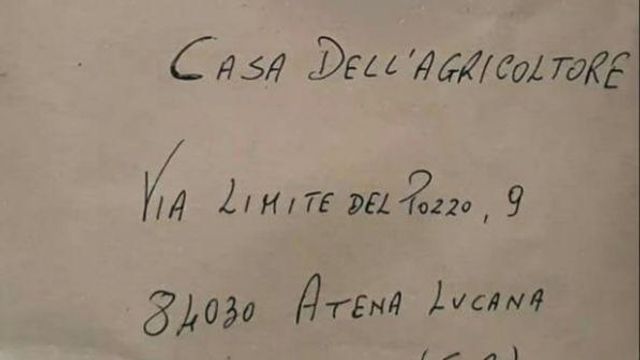 CASA DELL'AGRICOLTORE
VIA LIMITE DEL POZZO, 9
84030 ATENA LUCANA